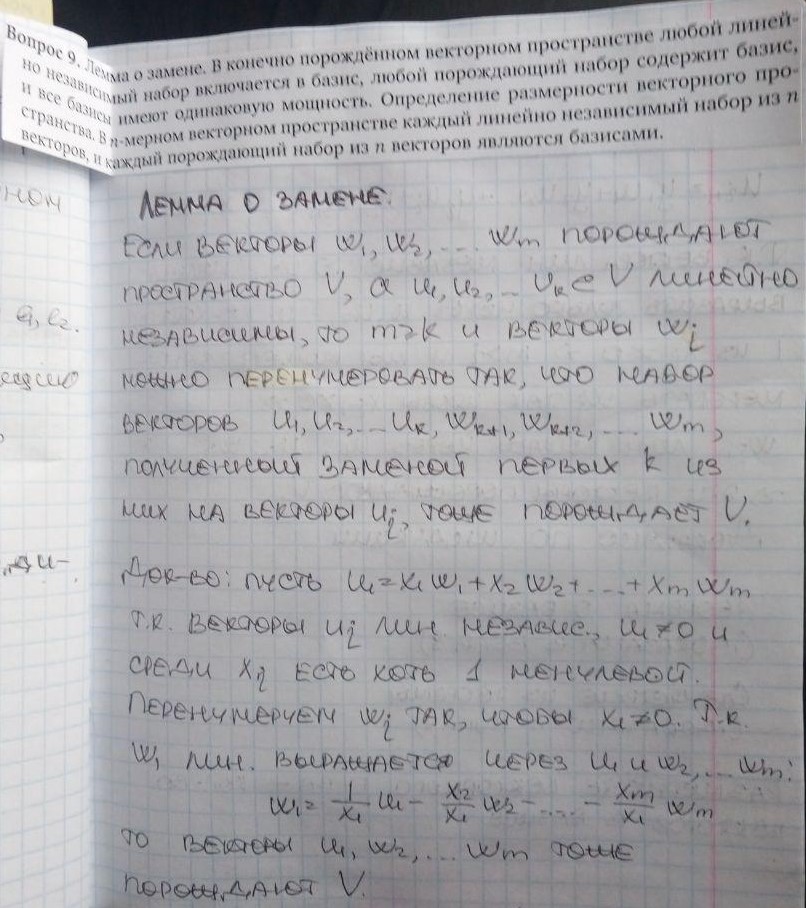 Вопрос 9. Лемма о замене. В конечно порождённом векторном пространстве любой линей-
но независимый набор включается в базис, любой порождающий набор содержит базис,
и все базисы имеют одинаковую мощность. Определение размерности векторного про-
странства. В n-мерном векторном пространстве каждый линейно независимый набор из n
векторов, и каждый порождающий набор из n векторов являются базисами.
ном
ЛЕММА О ЗАМЕНЕ.
Если векторы w₁, w₂, ... wm порождают
пространство V, а u₁, u₂, ... uk ∈ V линейно
e₁, e₂.
независимы, то m≥k и векторы wi
можно перенумеровать так, что набор
векторов u₁, u₂, ... uk, wk+1, wk+2, ... wm,
полученный заменой первых k из
них на векторы ui, тоже порождает V.
ди-
Док-во: пусть u₁ = x₁w₁ + x₂w₂ + ... + xmwm
т.к. векторы ui лин. независ., u₁ ≠ 0 и
среди xi есть хоть 1 ненулевой.
Перенумеруем wi так, чтобы x₁ ≠ 0. Т.к.
w₁ лин. выражается через u₁ и w₂, ... wm:
w₁ = 1/x₁ u₁ - x₂/x₁ w₂ - .... - xm/x₁ wm
то векторы u₁, w₂, ... wm тоже
порождают V.